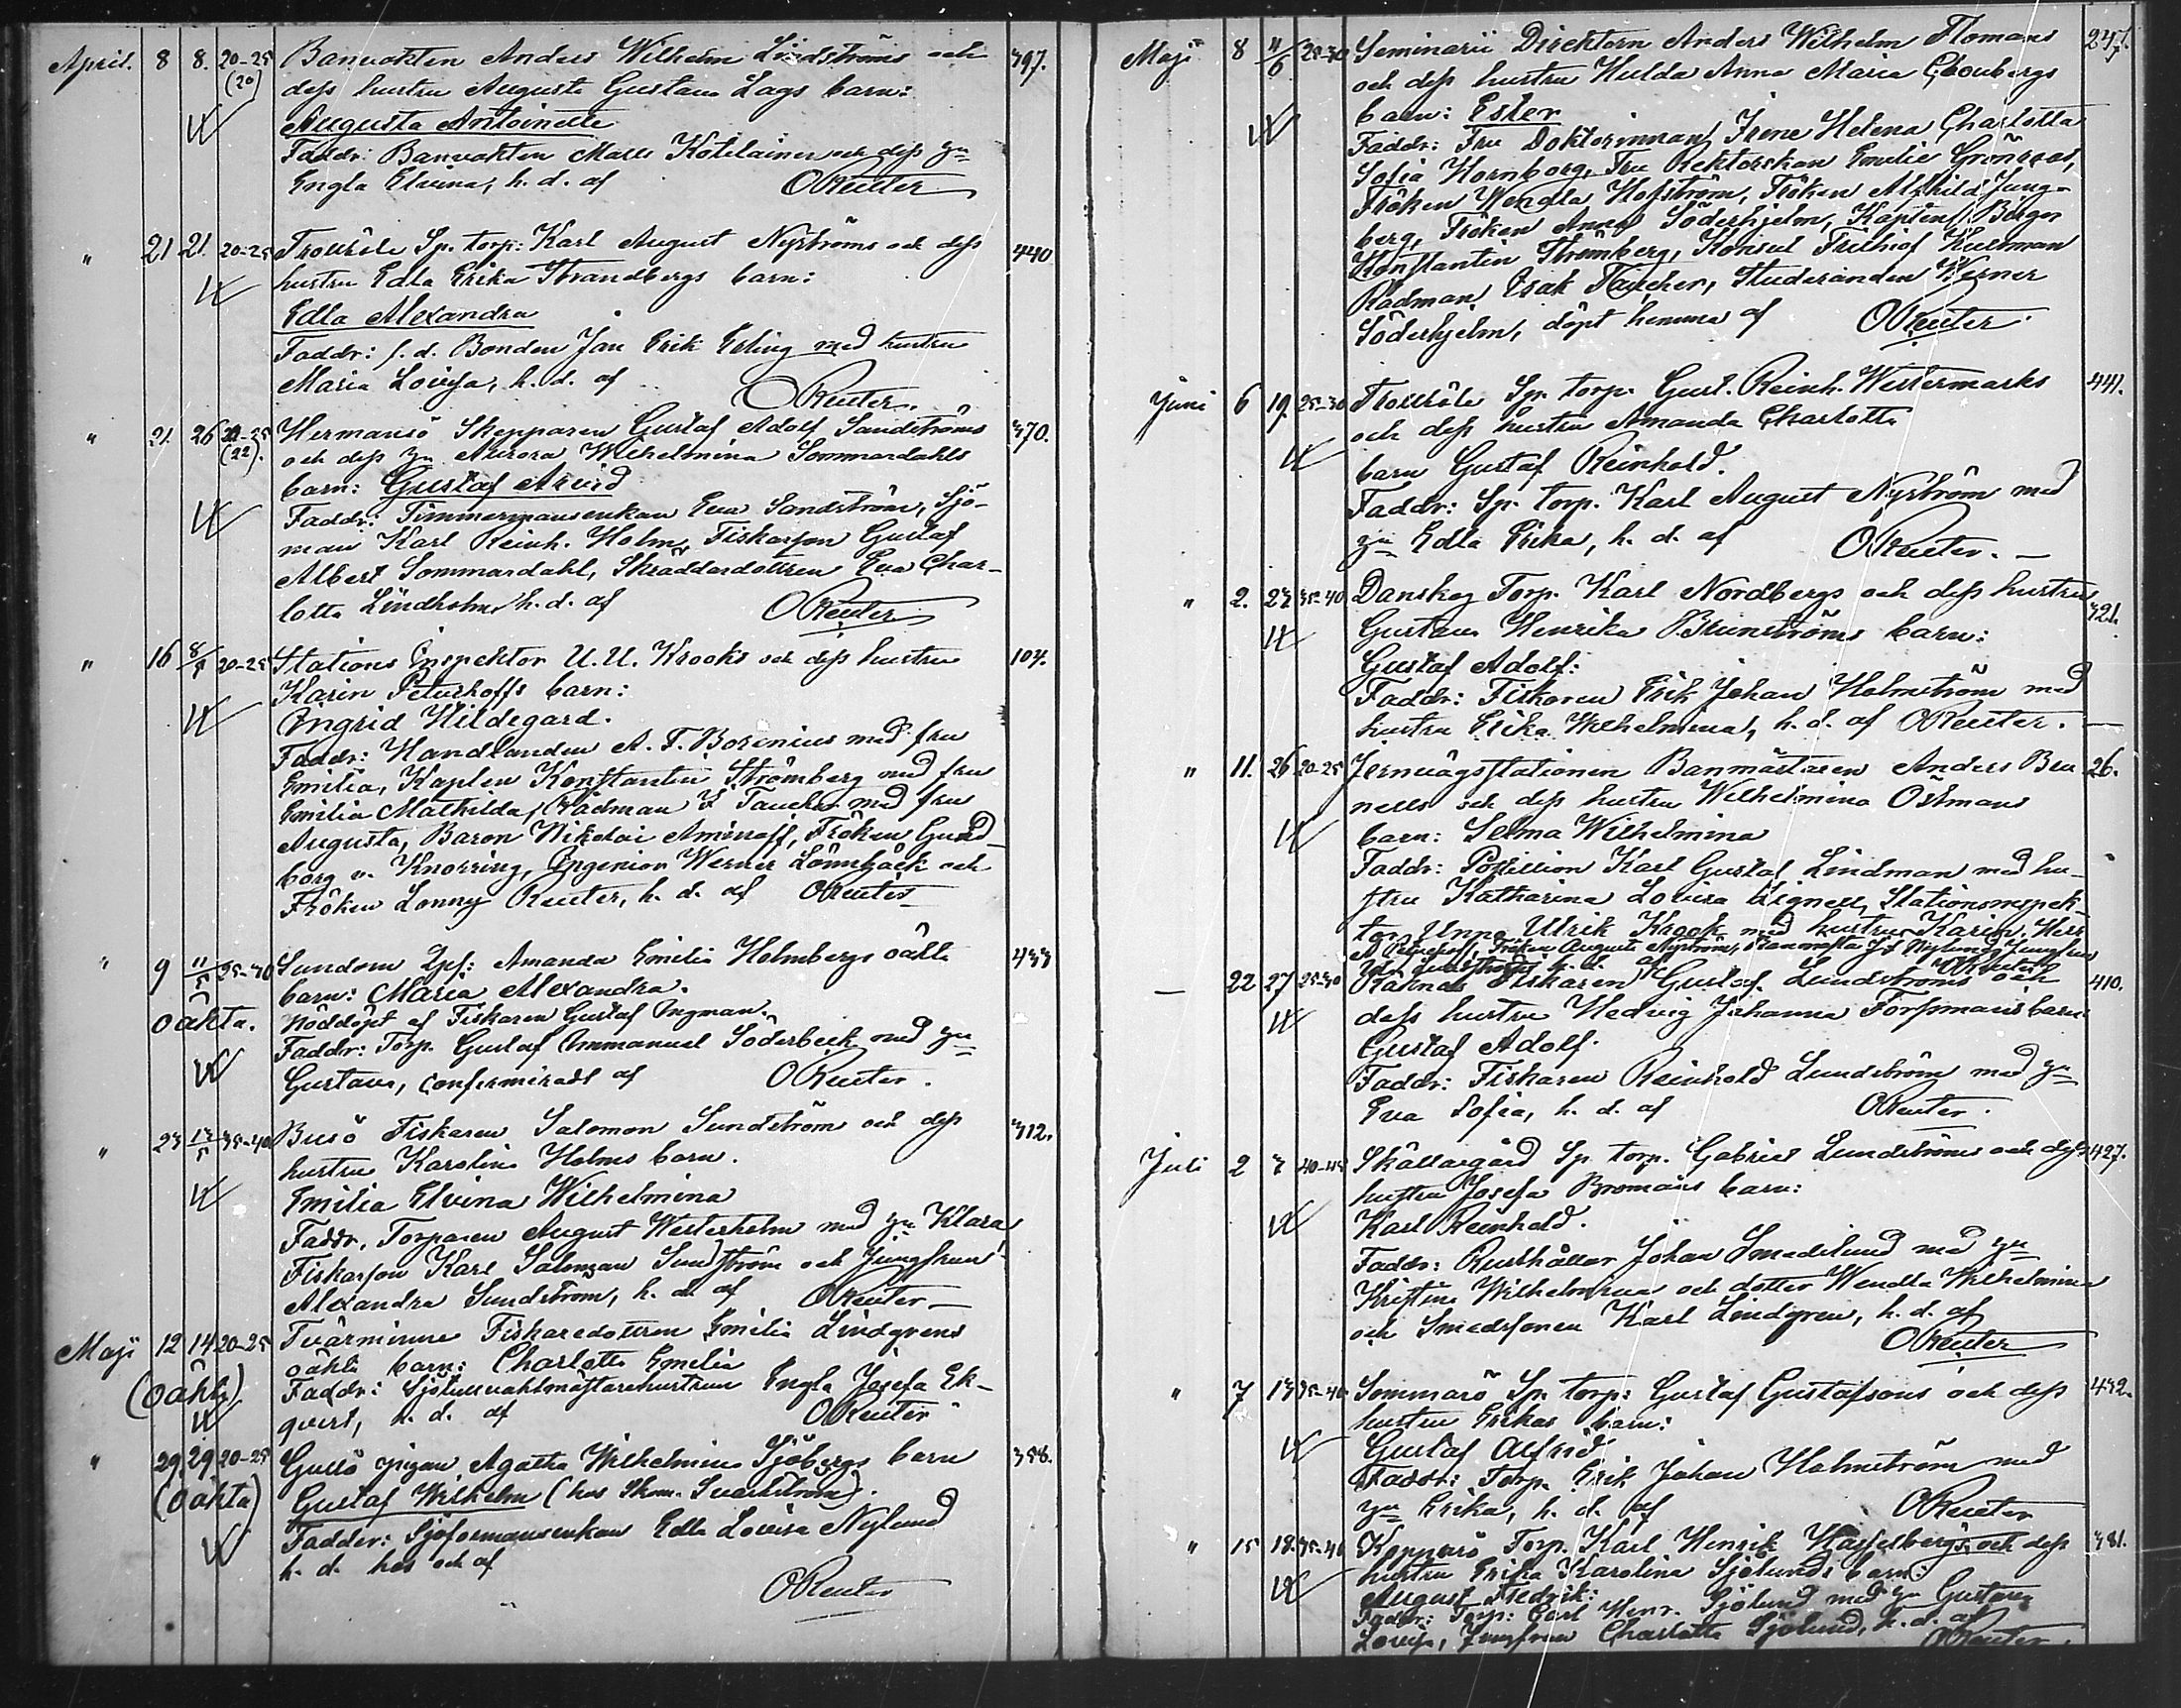 April. 8 8. 20-25 Banvakten Anders Wilhelm Lindströms och 397.
(20) dess hustru Augusta Gustava Lags barn:
Augusta Antoinette
Faddr: Banvakten Matts Kotilainen och dess hu
Engla Elvina, h. d. af OReuter
" 21 21. 20-25 Trollböle Sp. torp: Karl August Nyströms och dess 440
hustru Edla Erika Strandbergs barn:
Edla Alexandra
Faddr: f. d. Bonden Jan Erik Erling med hustru
Maria Lovisa, h. d. af OReuter.
" 21. 26 -25 Hermansö Skepparen Gustaf Adolf Sandströms 370.
(22). och dess hu Aurora Wilhelmina Sommardahls
barn: Gustaf Arvid
Faddr: Timmermansenkan Eva Sandström, Sjö-
man Karl Reinh. Holm, Fiskarson Gustaf
Albert Sommardahl, Skräddardottren Eva Char-
lotta Lindholm h. d. af OReuter
" 16 8/5 20-25 Stations Inspektor U. U. Krooks och dess hustru 104.
Karin Peterhoffs barn:
Ingrid Hildegard.
Faddr: Handlanden A. F. Borenius med fru
Emilia, Kapten Konstantin Strömberg med fru
Emilia Mathilda, Rådman I Taucher med fru
Augusta, Baron Nikolai Aminoff, Fröken Gund-
borg v. Knorring, Ingeniör Werner Lönnbäck och
Fröken Lonny Reuter, h. d. af OReuter
" 9 11/5 25-30 Sundom Qpf: Amanda Emilia Holmbergs oäkta 433
barn: Maria Alexandra.
oäkta. Nöddöpt af Fiskaren Gustaf Ingman.
Faddr: Torp. Gustaf Immanuel Söderbeck med hu
Gustava, confirmeradt af OReuter.
" 23 13/5 35-40 Busö Fiskaren Salomon Sundström och dess 312.
hustru Karolina Holms barn.
Emilia Elvina Wilhelmina
Faddr. Torparen August Westerholm med hu Klara,
Fiskarson Karl Saloman Sundström och Jungfrun
Alexandra Sundström, h. d. af OReuter
Maji 12 14 20-25 Tvärminne Fiskaredottren Emilia Lindgrens
oäkta barn: Charlotta Emelia
(oäkta) Faddr: Sjötullvaktmästarehustrun Engla Josefa Ek-
qvist, h. d. af OReuter
" 29. 29 20-25 Gullö pigan Agatha Wilhelmina Sjöbergs barn 358.
(oäkta) Gustaf Wilhelm (hos Skom. Svartström).
Fadder: Sjöformansenkan Edla Lovisa Nylund
h. d. hos och af
OReuter
Maji 8 11/6 25-30 Seminarii Direktorn Anders Wilhelm Flomans 247.
och dess hustru Hulda Anna Maria Choubergs
barn: Ester
Faddr: Fru Doktorinnan Irene Helena Charlotta
Sofia Hornborg, Fru Rektorskan Emelie Grönroos,
Fröken Wendla Hofström, Fröken Alfhild Ljung-
berg, Fröken Anna Söderhjelm, Kapten Birger
Konstantin Strömberg, Konsul Frithiof Hultman
Rådman Isak Taucher, Studeranden Werner
Söderhjelm, döpt hemma af OReuter.
Juni 6 19. 25-30 Trollböle Sp. torp. Gust. Reinh. Westermarks 441.
och dess hustru Amanda Charlotta
barn Gustaf Reinhold.
Faddr: Sp. torp. Karl August Nyström med
hu Edla Erika, h. d. af OReuter.
" 2. 23 35-40 Danskog Torp. Karl Nordbergs och dess hustru 321.
Gustava Henrika Brunströms barn:
Gustaf Adolf:
Faddr: Fiskaren Erik Johan Holmström med
hustru Erika Wilhelmina, h. d. af OReuter.
" 11. 26 20-25 Jernvägsstationen Banmästaren Anders Bru- 26.
nells och dess hustru Wilhelmina Östmans
barn: Selma Wilhelmina
Faddr: Postillion Karl Gustaf Lindman med hu-
stru Katharina Lovisa Lignell, Stationsinspek-
tor Unno Ulrik Krook med hustru Karin, Herr
A Peterhoff, Fröken Augusta Nyström, Banmästa J. Nyland, Jungfrun
h. d. af OReuter
— 22 27 25-30 Fiskaren Gustaf Lundströms och 410.
dess hustru Hedvig Johanna Forsmans barn:
Gustaf Adolf.
Faddr: Fiskaren Reinhold Lundström med hu
Eva Sofia, h. d. af OReuter.
Juli 2 3 40-45 Skållargård Sp. torp. Gabriel Lundströms och dess 427.
hustru Josefa Bromans barn:
Karl Reinhold.
Faddr: Rusthållar Johan Smedslund med hu
Kristina Wilhelmina och dotter Wendla Wilhelmina
och Smedsonen Karl Lindgren, h. d. af
OReuter
" 7 13 35-40 Sommarö Sp. torp: Gustaf Gustafsons och dess 432.
hustru Erikas barn:
Gustaf Alfrid
Faddr: Torp. Erik Johan Holmström med
hu Erika, h. d. af OReuter
" 15 18. 35-40 Kopparö Torp. Karl Henrik Hasselbergs och dess 381.
hustru Erika Karolina Sjölunds barn:
August Fredrik:
Faddr: Torp: Carl Henr. Sjölund med hu Gustava
Lovisa, Jungfrun Charlotta Sjölund, h. d. af
OReuter.